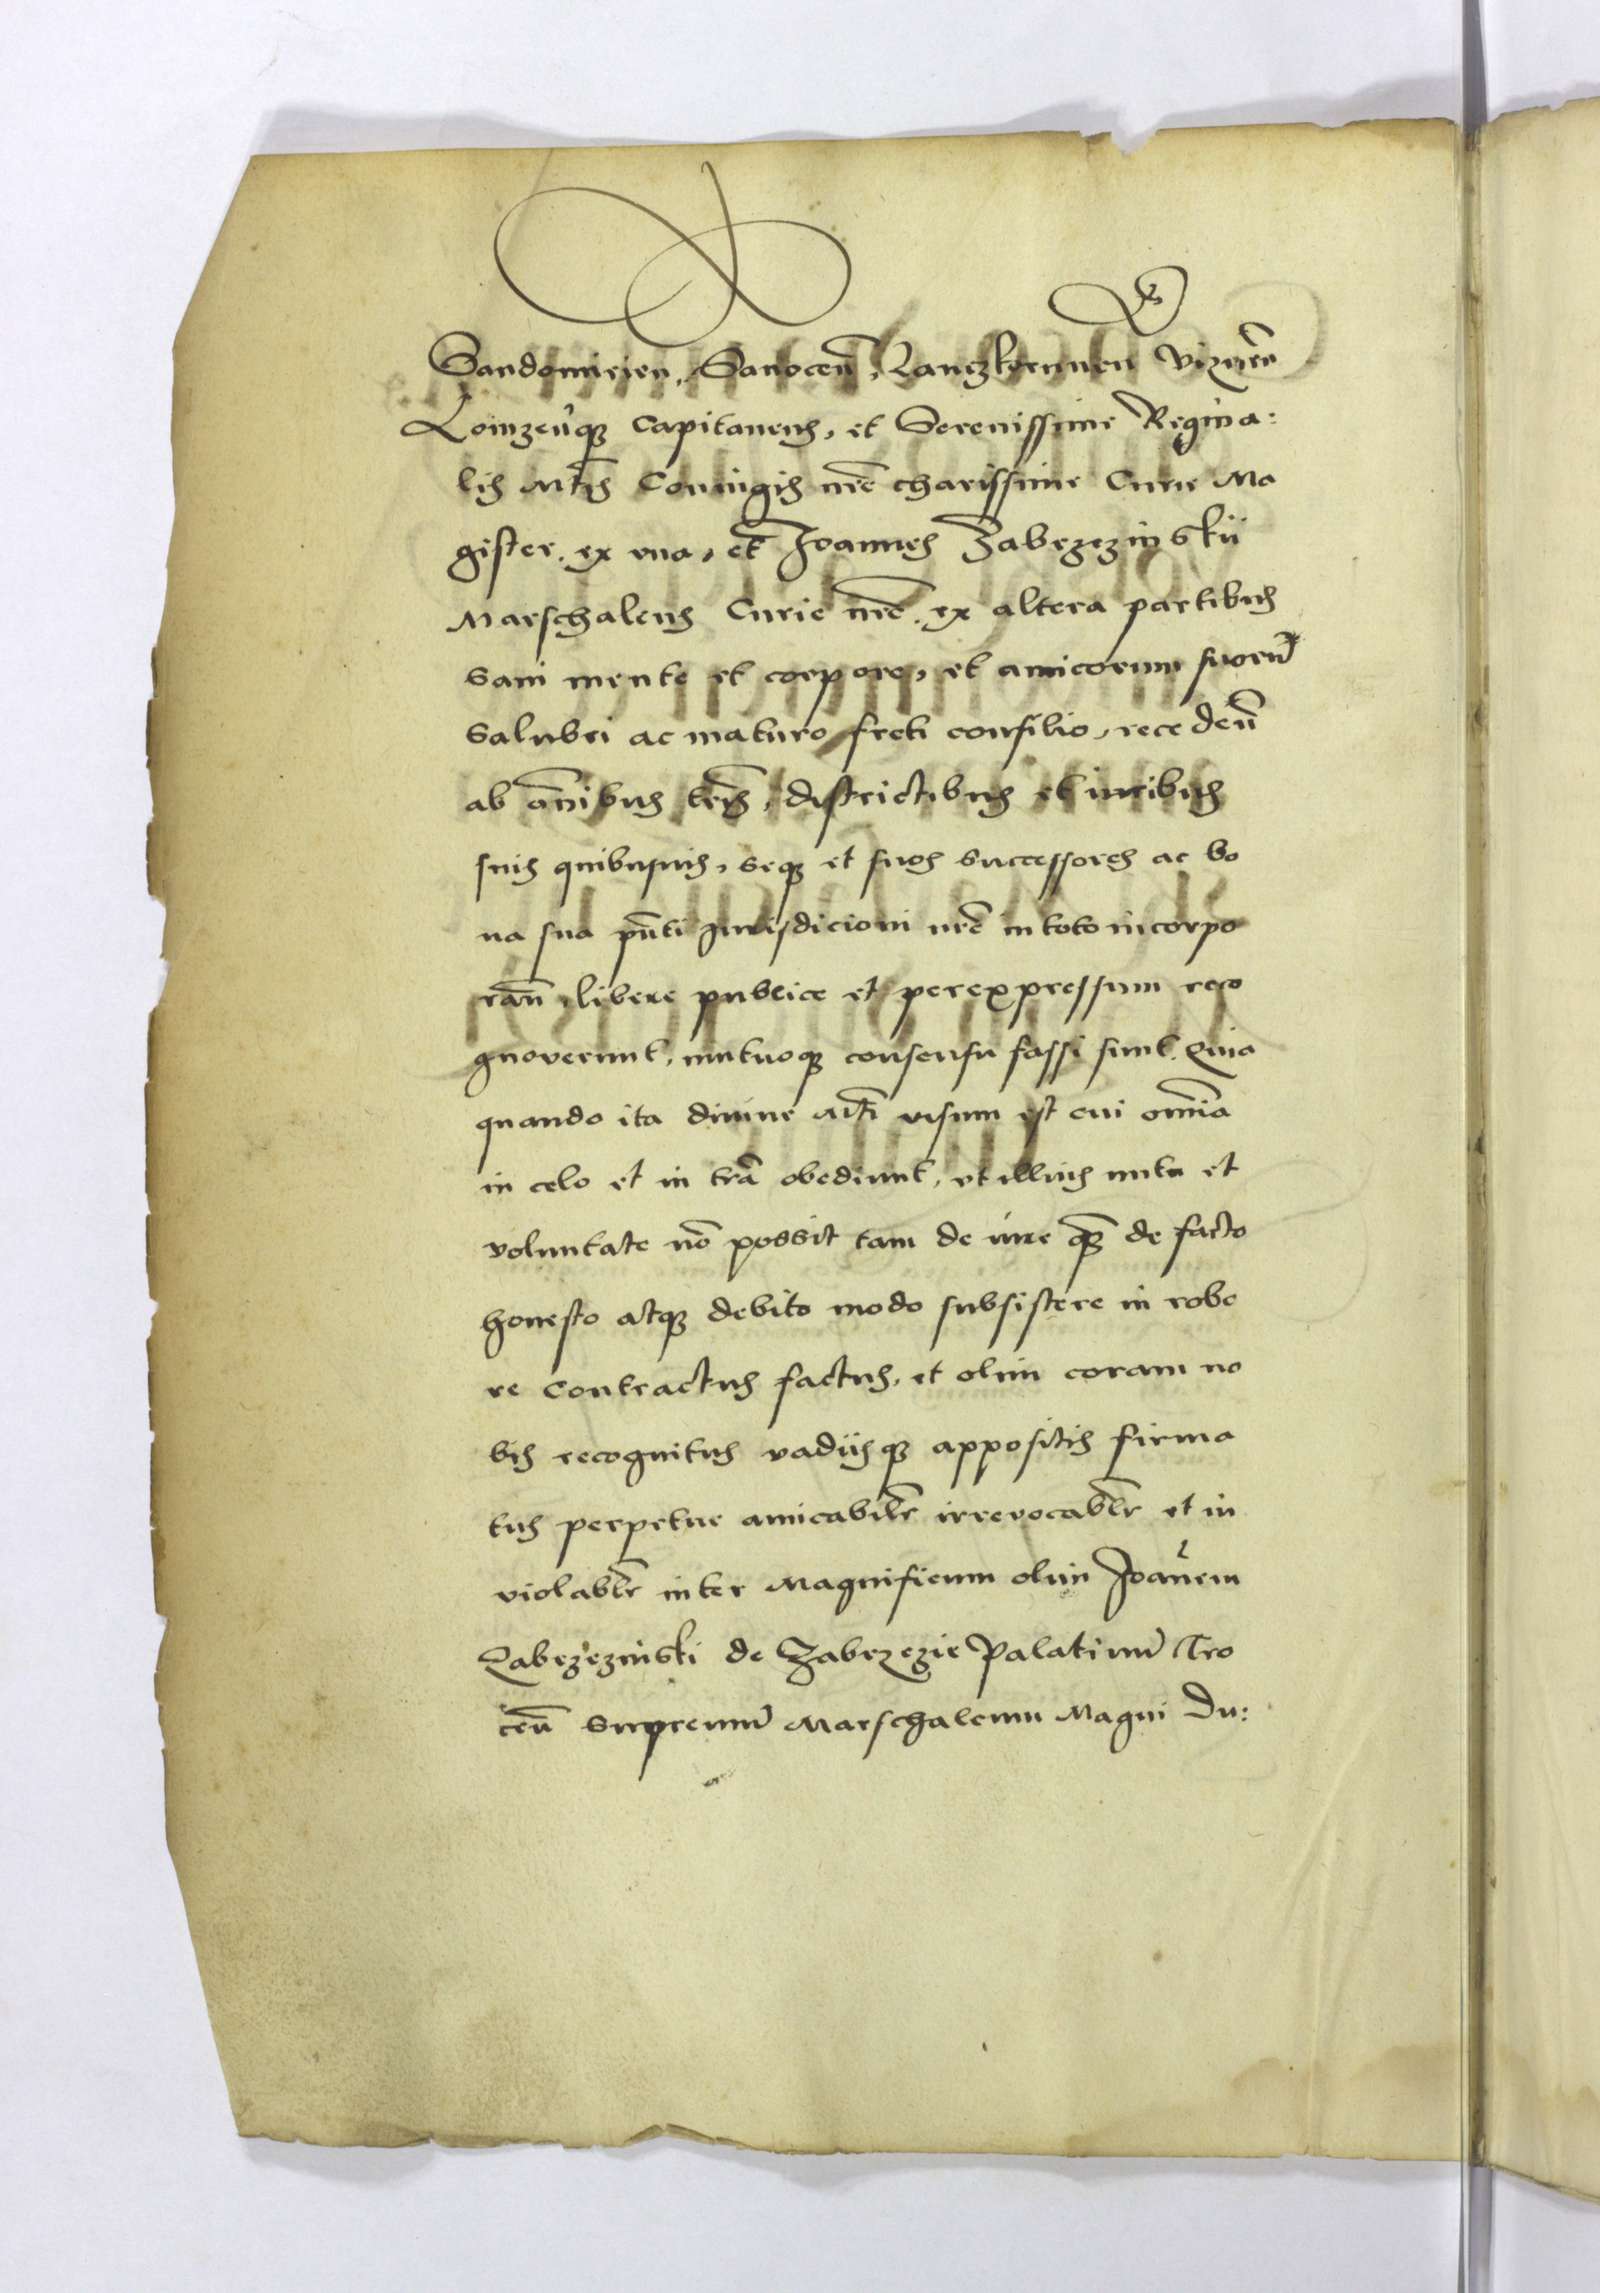 Sandomirien, Sanocen̄, Lanczkorunen Viznen̄
Lomzen̄q3 Capitaneus, et Serenissime Regina:
lis Mt̄is Coniugis nr̄e charissime Curie Ma
gister. ex vna, et Joannes Zabrzezinskii
Marschalcus Curie nr̄e. ex altera partibus
sani mente et corpore, et amicorum suorū
salubri ac maturo freti consilio, recedeñ
ab om̄ibus terris, districtibus et iuribus
suis quibusuis, seq3 et suos successores ac bo
na sua pn̄ti Jurisdicioni nr̄e in toto incorpo
ran̄, libere publice et perexpressum reco
gnoverunt, mutuoq3 consensu fassi sunt. Quia
quando ita diuine Mt̄i visum est cui omnia
in celo et in tr̄a obediunt, vt illius nutu et
voluntate nō possit tam de iure q̄3 de facto
honesto atq3 debito modo subsistere in robo
re Contractus factus, et olim coram no
bis recognitus vadiisq3 appositis firma
tus perpetue amicabilr̄ irrevocablr̄ et in
violablr̄ inter Magnificum olim Joañem
Zabrzezinski de Zabrzezie Palatinū Tro
ceñ Supremū Marschalcum Magni Du: